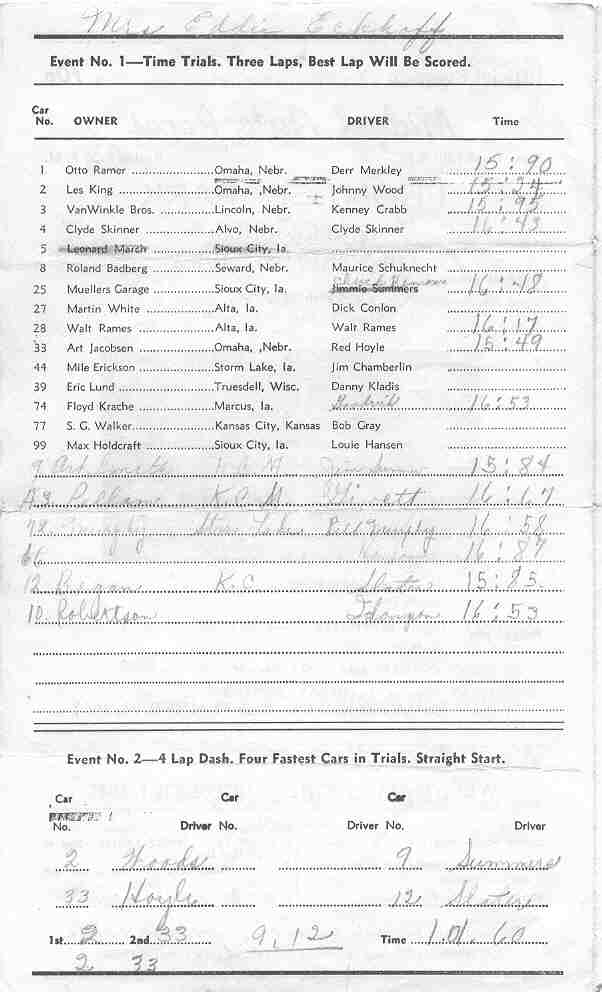 Mrs Eddie Eckhoff
Event No. 1—Time Trials. Three Laps, Best Lap Will Be Scored.
Car
No. OWNER DRIVER Time
1 Otto Ramer Omaha, Nebr. Derr Merkley 15:90
2 Les King Omaha, ,Nebr. Johnny Wood 15:24
3 VanWinkle Bros. Lincoln, Nebr. Kenney Crabb 15:95
4 Clyde Skinner Alvo, Nebr. Clyde Skinner 16:43
5 Leonard March Sioux City, Ia.
8 Roland Badberg Seward, Nebr. Maurice Schuknecht
25 Muellers Garage Sioux City, Ia. Jimmie Summers 16:48
27 Martin White Alta, Ia. Dick Conlon
28 Walt Rames Alta, Ia. Walt Rames 16:17
33 Art Jacobsen Omaha, ,Nebr. Red Hoyle 15:49
44 Mile Erickson Storm Lake, Ia. Jim Chamberlin
39 Eric Lund Truesdell, Wisc. Danny Kladis
74 Floyd Krache Marcus, Ia. 16:53
77 S. G. Walker Kansas City, Kansas Bob Gray
99 Max Holdcraft Sioux City, Ia. Louie Hansen
9 Art 15:84
K.C. M. 16:67
78 Storm Lake Bill 16:58
66 16:87
12 Regan K.C. Slater 15:85
10. Robertson 16:53
Event No. 2—4 Lap Dash. Four Fastest Cars in Trials. Straight Start.
Car Car Car
No. Driver No. Driver No. Driver
2 Woods 9 Summers
33 Hoyle 12 Slater
1st 2 2nd 33 9, 12 Time 1.01.60
2 33